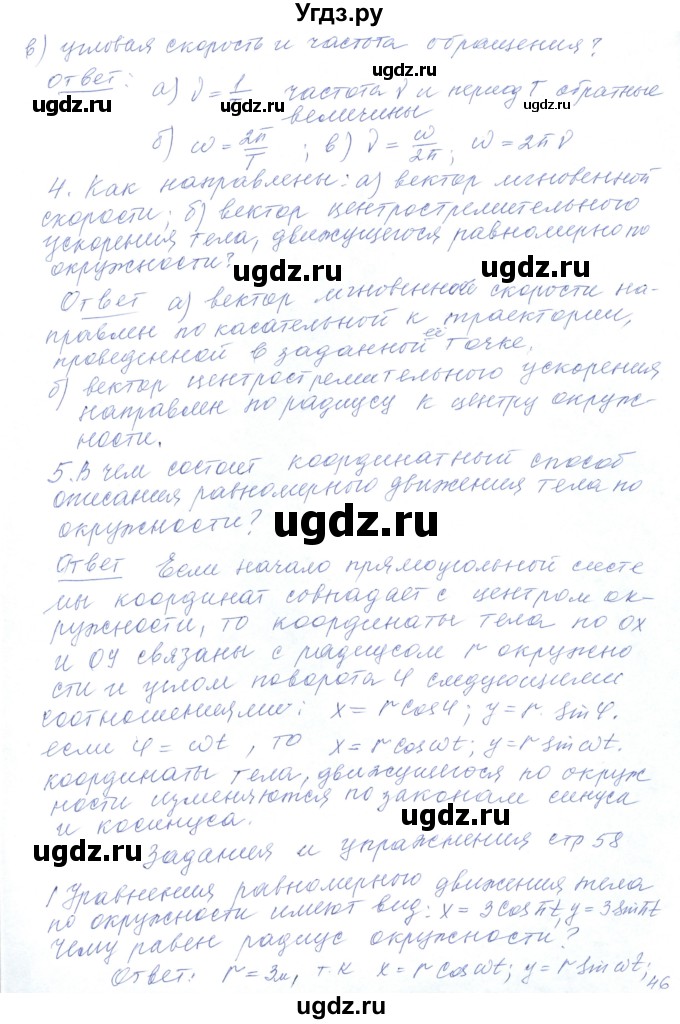 Угдз.ру
в) угловая скорость и частота обращения?
Ответ: а) ν = 1/T частота ν и период T обратные
величины
б) ω = 2π/T ; в) ν = ω/2π ; ω = 2πν
4. Как направлены: а) вектор мгновенной
скорости; б) вектор центростремительного
ускорения тела, движущегося равномерно по
окружности?
Ответ а) вектор мгновенной скорости на-
правлен по касательной к траектории,
проведенной в заданной её точке.
б) вектор центростремительного ускорения
направлен по радиусу к центру окруж-
ности.
5. В чем состоит координатный способ
описания равномерного движения тела по
окружности?
Ответ Если начало прямоугольной систе
мы координат совпадает с центром ок-
ружности, то координаты тела по OX
и OY связаны с радиусом r окружно
сти и углом поворота φ следующими
соотношениями: x = r cosφ; y = r sinφ.
если φ = ωt, то x = r cosωt; y = r sinωt.
координаты тела, движущегося по окруж
ности изменяются по законам синуса
и косинуса.
Задания и упражнения стр 58
1 Уравнения равномерного движения тела
по окружности имеют вид: x = 3cosπt, y = 3sinπt
Чему равен радиус окружности?
Ответ: r = 3м, т.к x = r cosωt; y = r sinωt;
46
ugdz.ru
ugdz.ru
ugdz.ru
ugdz.ru
ugdz.ru
ugdz.ru
ugdz.ru
ugdz.ru
ugdz.ru
ugdz.ru
ugdz.ru
ugdz.ru
ugdz.ru